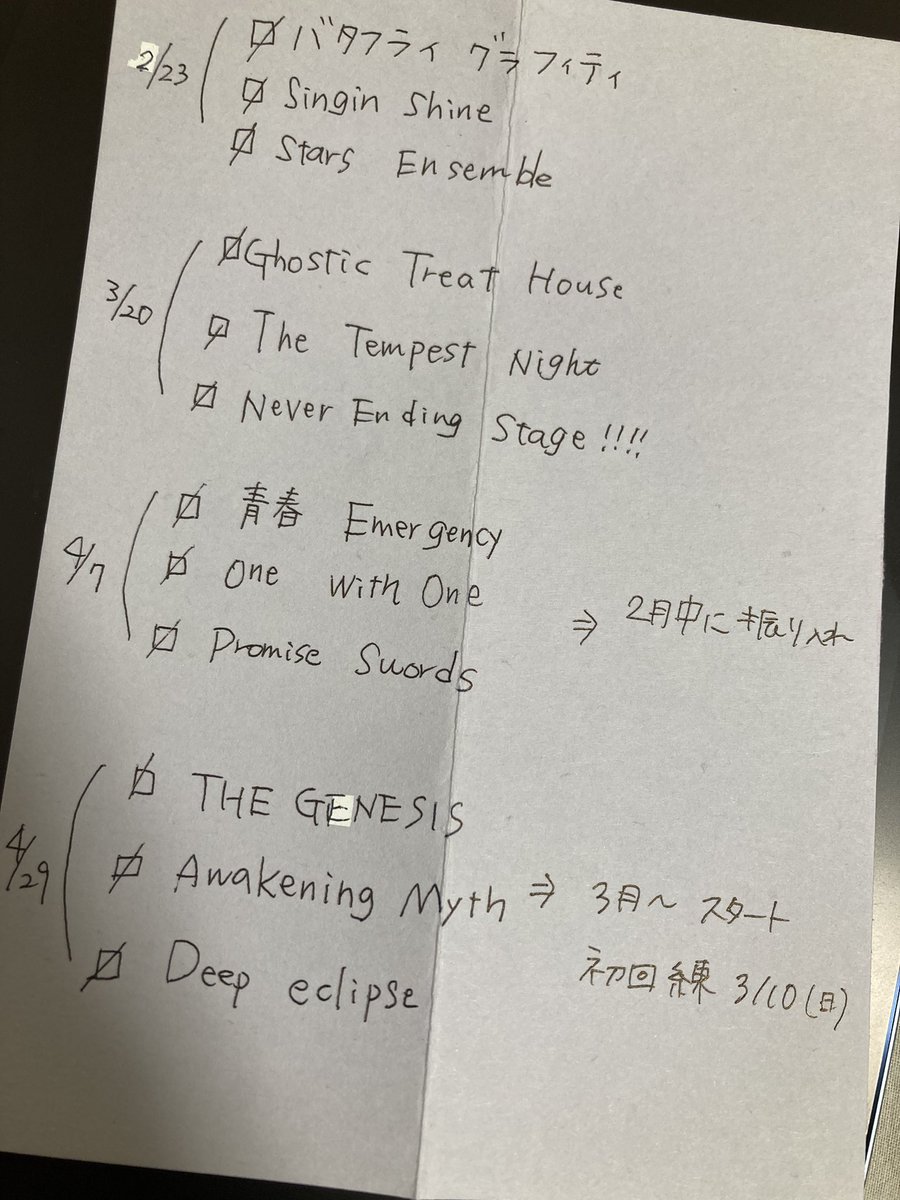 2/23
バタフライ グラフィティ
Singin Shine
Stars Ensemble
3/20
Ghostic Treat House
The Tempest Night
Never Ending Stage!!!!
4/7
青春 Emergency
One with One
⇒ 2月中に振り入れ
Promise Swords
4/29
THE GENESIS
Awakening Myth ⇒ 3月〜 スタート
初回練 3/10(日)
Deep eclipse